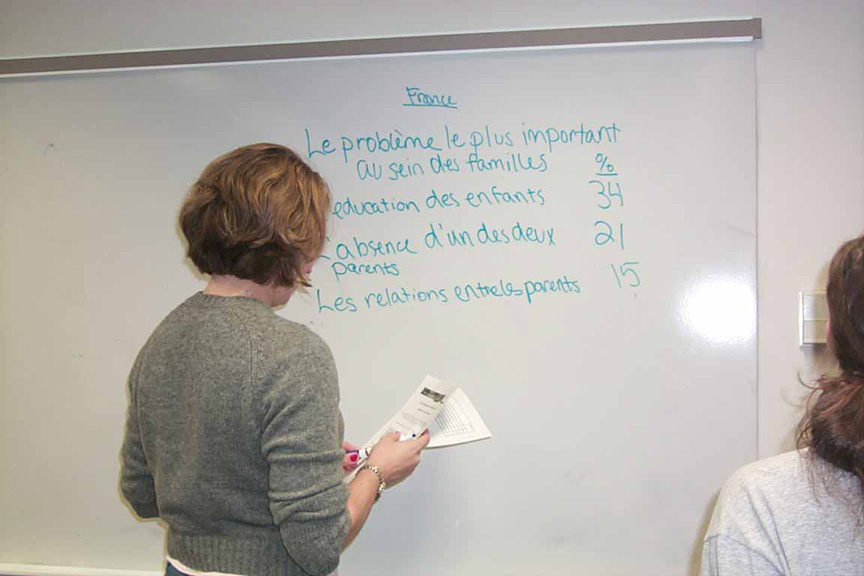 France
Le problème le plus important
au sein des familles %
education des enfants 34
L'absence d'un des deux 21
parents
Les relations entre les parents 15